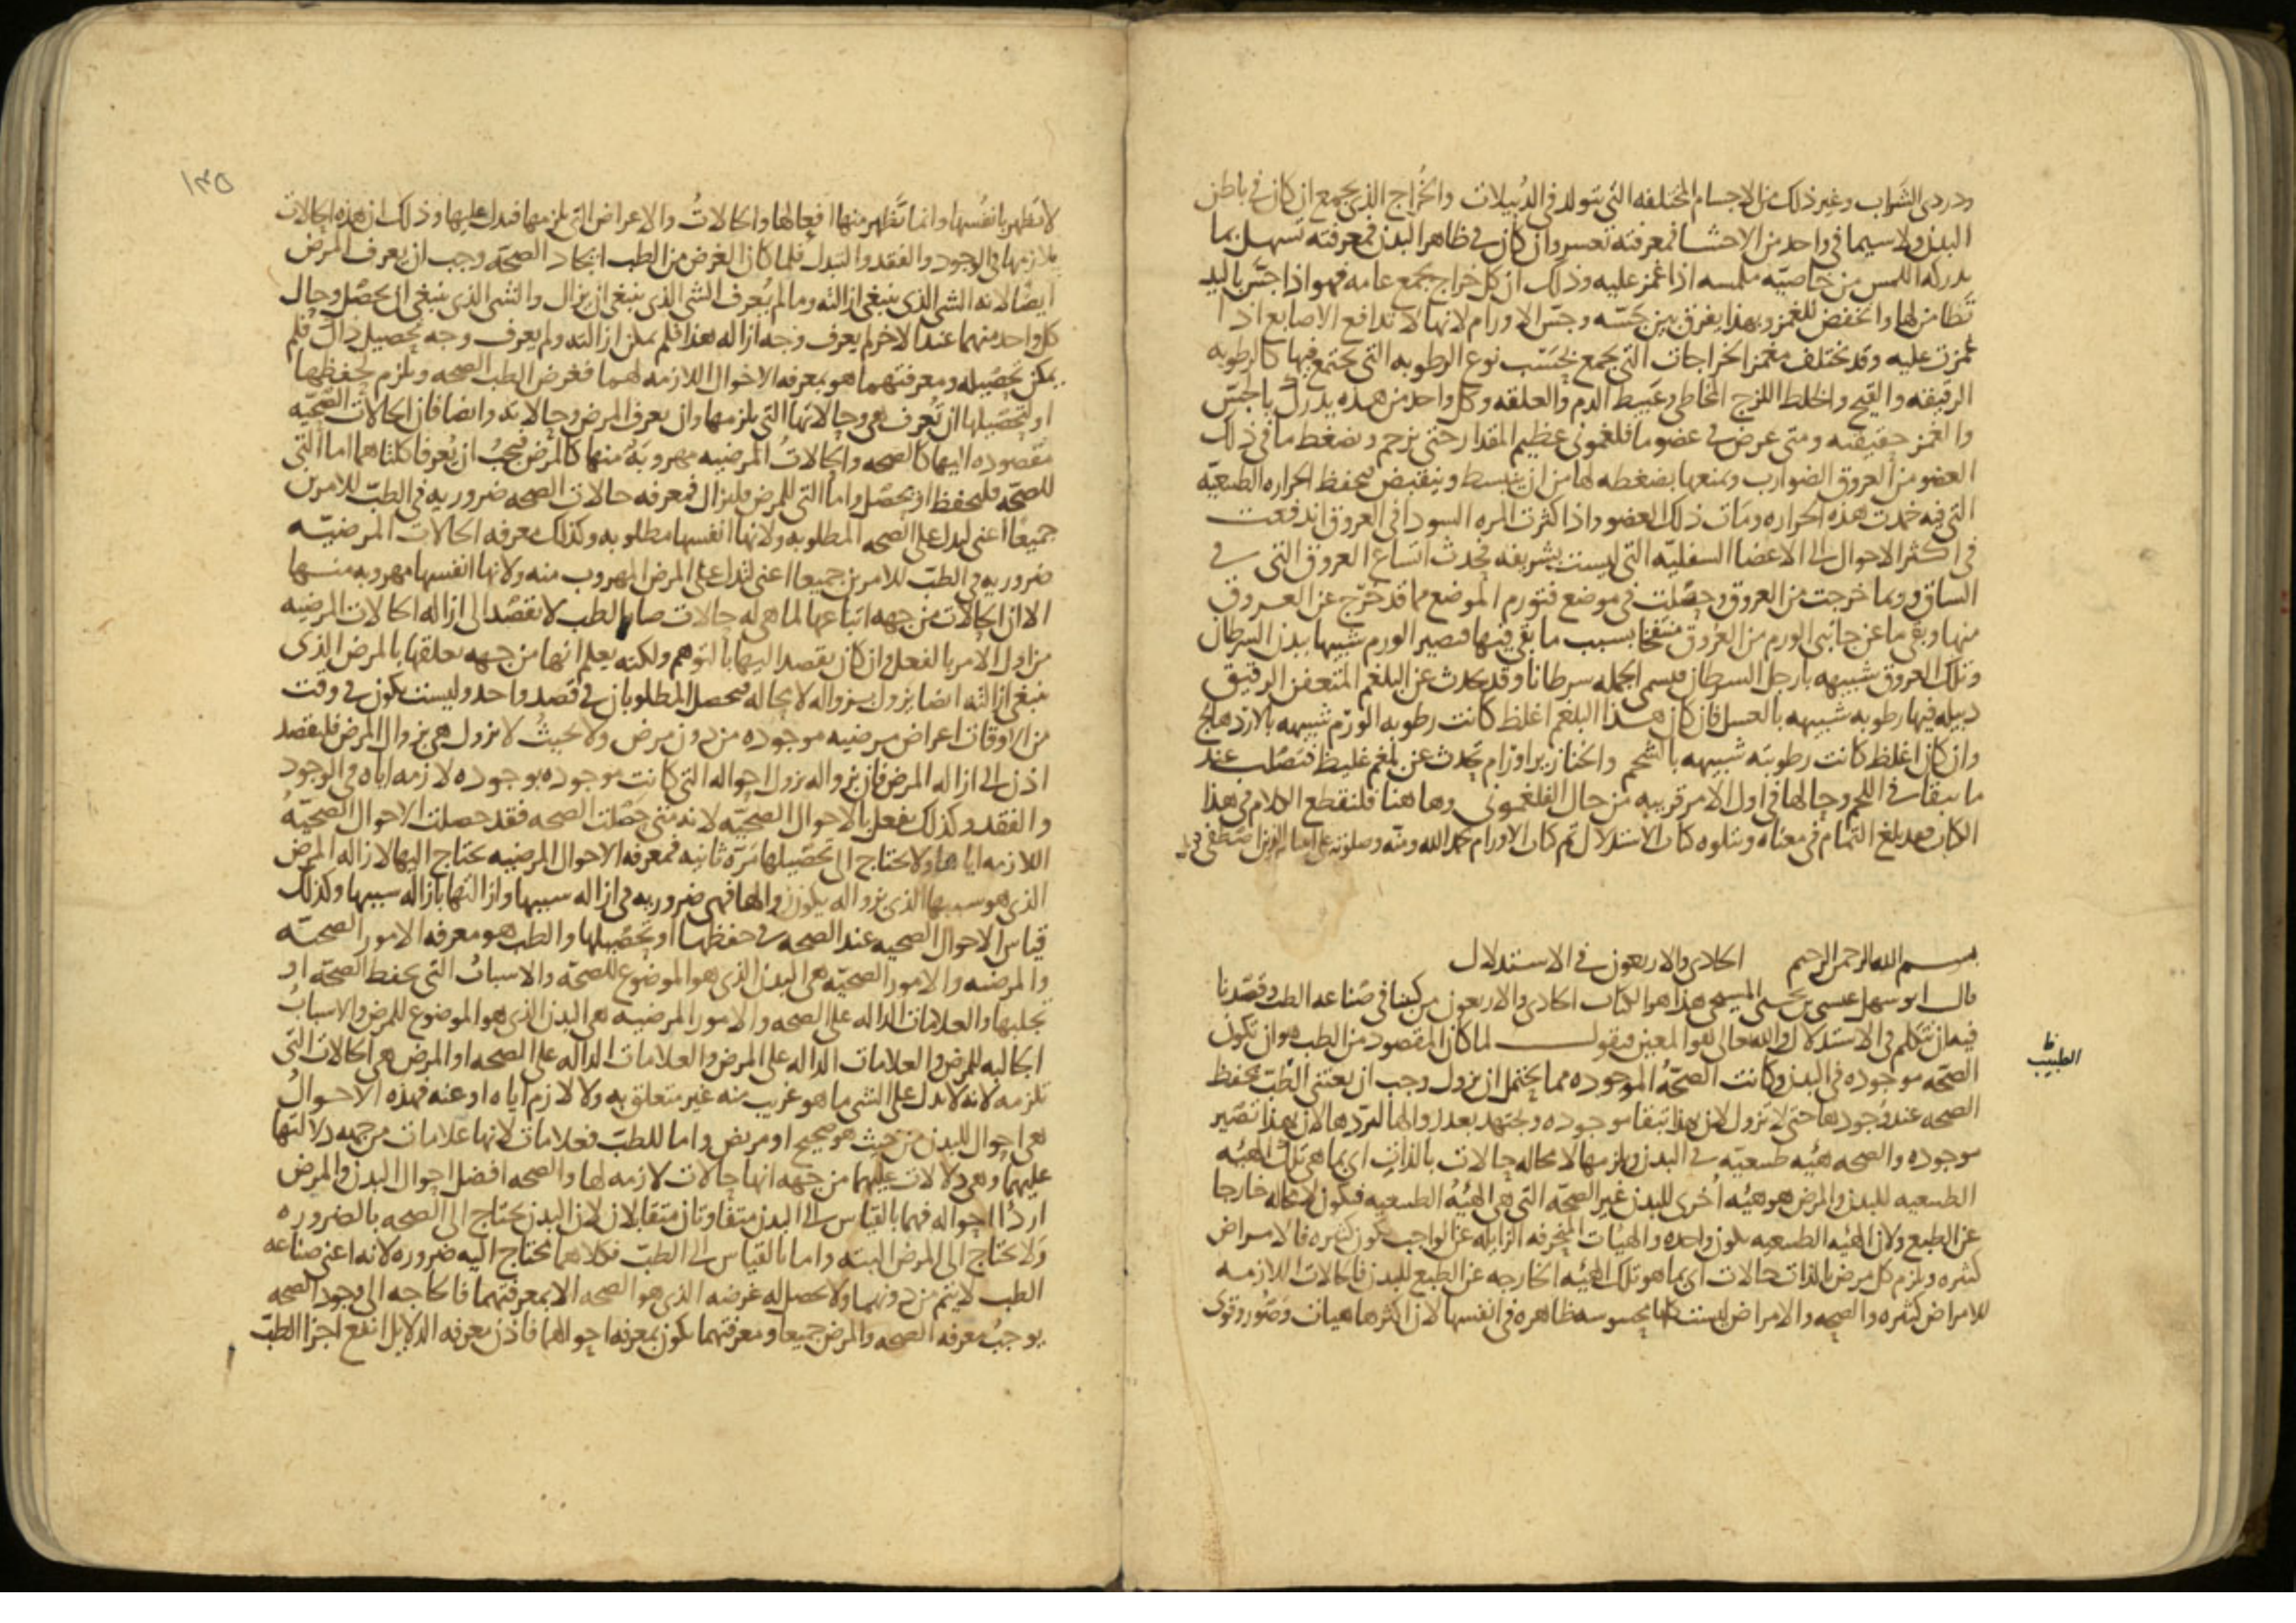 ودردى الشراب وغير ذلك من الاجسام المختلفه التى تتولد فى الدبيلات والخراج الذى يجمع ان كان فى باطن
البدن ولا سيما فى واحد من الاحشا فمعرفته تعسر وان كان فى ظاهر البدن فمعرفته تسهل بما
يدركه اللمس من خاصيه ملمسه اذا غمز عليه وذلك ان كل خراج يجمع عامه فهو اذا جس باليد
تطامن لها وانخفض للغمز وبهذا يفرق بين مجسه وجس الاورام لانها لا تدافع الاصابع اذا
غمزت عليه وقد تختلف مغمز الخراجات التى يجمع بحسب نوع الرطوبه التى يجتمع فيها كالرطوبه
الرقيقه والقيح والخلط اللزج المخاطى وعبيط الدم والعلقه وكل واحد من هذه يدرك بالجس
والغمز حقيقته ومتى عرض فى عضو ما فلغمونى عظيم المقدار حتى يزحم وتضغط ما فى ذلك
العضو من العروق الضوارب ومنعها بضغطه لها من ان ينبسط وينقبض فيحفظ الحراره الطبيعيه
التى فيه خمدت هذه الحراره ومات ذلك العضو واذا كثرت المره السودا فى العروق اندفعت
فى اكثر الاحوال الى الاعضا السفليه التى ليست بشريفه فحدث اتساع العروق التى فى
الساق وربما خرجت من العروق وحصلت فى موضع فتورم الموضع مما قد خرج عن العروق
منها وبقى ما عن جانبى الورم من العروق منتفخا بسبب ما بقى فيها فصير الورم شبيها ببدن السرطان
وتلك العروق شبيهه بارجل السرطان فيسمى الجمله سرطانا وقد يحدث عن البلغم المتعفن الرقيق
دبيله فيها رطوبه شبيهه بالعسل فان كان هذا البلغم اغلظ كانت رطوبه الورم شبيهه بالاردهالج
وان كان اغلظ كانت رطوبته شبيهه بالشحم والخنازير اورام تحدث عن بلغم غليظ فتصلب عند
ما تبقا فى اللحم وحالها فى اول الامر قريبه من حال الفلغمونى وها هنا فلنقطع الكلام فى هذا
الكتاب فقد بلغ التمام فى معناه ونتلوه كتاب الاستدلال تم كتاب الاورام بحمد الله ومنه وصلوته على
بسم الله الرحمن الرحيم الحادى والاربعون فى الاستدلال
قال ابو سهل عيسى بن يحيى المسيحى هذا هو الكتاب الحادى والاربعون من كتبنا فى صناعه الطب وقصدنا
فيه ان نتكلم فى الاستدلال والله تعالى هو المعين فنقول لما كان المقصود من الطب هو ان تكون
الطبيب
الصحه موجوده فى البدن وكانت الصحه الموجوده مما يحتمل ان يزول وجب ان يعتنى الطب بحفظ
الصحه عند وجودها حتى لا تزول لان بهذا تبقا موجوده ويجتهد بعد زوالها لتردها لان بهذا تصير
موجوده والصحه هيئه طبيعيه فى البدن ويلزمها لا محاله حالات بالذات اى بما هى تلك الهيئه
الطبيعيه للبدن والمرض هو هيئه اخرى للبدن غير الصحه التى هى الهيئه الطبيعيه فيكون لا محاله خارجا
عن الطبع ولان الهيئه الطبيعيه تكون واحده والهيئات المنحرفه الزايله عن الواجب تكون كثيره فالامراض
كثيره ويلزم كل مرض بالذات حالات اى بما هو تلك الهيئه الخارجه عن الطبع للبدن فالحالات اللازمه
للامراض كثيره والصحه والامراض ليست كلها محسوسه ظاهره فى انفسها لان اكثرها هيات وصور وقوى
١٣٥
لا تظهر بانفسها وانما تظهر منها افعالها والحالات والاعراض التى يلزمها فيدل عليها وذلك ان هذه الحالات
يلازمها فى الوجود والفقد والتبدل فلما كان الغرض من الطب ايجاد الصحه وجب ان يعرف المرض
ايضا لانه الشى الذى ينبغى ازالته وما لم يعرف الشى الذى ينبغى ان يزال والشى الذى ينبغى ان يحصل وحال
كل واحد منهما عند الاخر لم يعرف وجه ازاله هذا فلم يمكن ازالته ولم يعرف وجه تحصيل ذاك فلم
يمكن تحصيله ومعرفتهما هو بمعرفه الاحوال اللازمه لهما فغرض الطب الصحه ويلزم لحفظها
او لتحصيلها ان يعرف هى وحالاتها التى يلزمها وان يعرف المرض وحالاته وايضا فان الحالات الصحيه
مقصوده اليها كالصحه والحالات المرضيه مهروبه منها كالمرض فيجب ان يعرفا كلتاهما اما التى
للصحه فلتحفظ او يحصل واما التى للمرض فليزال فمعرفه حالات الصحه ضروريه فى الطب للامرين
جميعا اعنى ليدل على الصحه المطلوبه ولانها انفسها مطلوبه وكذلك معرفه الحالات المرضيه
ضروريه فى الطب للامرين جميعا اعنى لتدل على المرض المهروب منه ولانها انفسها مهروبه منها
الا ان الحالات من جهه اتباعها لما هى له حالات صار الطب لا يقصد الى ازاله الحالات المرضيه
من اول الامر بالفعل وان كان يقصد اليها بالتوهم ولكنه يعلم انها من جهه تعلقها بالمرض الذى
ينبغى ازالته ايضا يزول بزواله لا محاله فيحصل المطلوبان فى قصد واحد وليست يكون فى وقت
من الاوقات اعراض مرضيه موجوده من دون مرض ولا بحيث لا يزول هى بزوال المرض فليقصد
اذن الى ازاله المرض فان بزواله يزول احواله التى كانت موجوده بوجوده لازمه اياه فى الوجود
والفقد وكذلك يفعل بالاحوال الصحيه لانه متى حصلت الصحه فقد حصلت الاحوال الصحيه
اللازمه اياها ولا يحتاج الى تحصيلها مره ثانيه فمعرفه الاحوال المرضيه يحتاج اليها لازاله المرض
الذى هو سببها الذى بزواله يكون زوالها فهى ضروريه فى ازاله سببها وازالتها بازاله سببها وكذلك
قياس الاحوال الصحيه عند الصحه فى حفظها او تحصيلها والطب هو معرفه الامور الصحيه
والمرضيه والامور الصحيه هى البدن الذى هو الموضوع للصحه والاسباب التى يحفظ الصحه او
تجلبها والعلامات الداله على الصحه والامور المرضيه هى البدن الذى هو الموضوع للمرض والاسباب
الجالبه للمرض والعلامات الداله على المرض والعلامات الداله على الصحه او المرض هى الحالات التى
تلزمه لانه لا يدل على الشى ما هو غريب منه غير متعلق به ولا لازم اياه او عنه فهذه الاحوال
هى احوال للبدن من حيث هو صحيح او مريض واما للطب فعلامات لانها علامات من جهه دلالتها
عليهما وهى دلالات عليهما من جهه انها حالات لازمه لها والصحه افضل احوال البدن والمرض
اردأ احواله فهما بالقياس الى البدن متفاوتان متقابلان لان البدن يحتاج الى الصحه بالضروره
ولا يحتاج الى المرض البته واما بالقياس الى الطب فكلاهما يحتاج اليه ضروره لانه اعنى صناعه
الطب لا يتم من دونهما ولا يحصل له غرضه الذى هو الصحه الا بمعرفتهما فالحاجه الى وجود الصحه
يوجب معرفه الصحه والمرض جميعا ومعرفتهما يكون بمعرفه احوالهما فاذن معرفه الدلايل انفع اجزا الطب